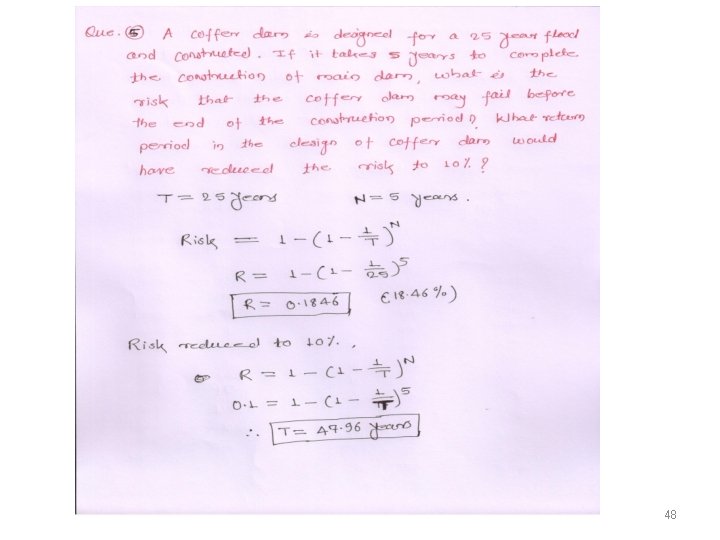 Que. ⑤ A coffer dam is designed for a 25 year flood
and constructed. If it takes 5 years to complete
the construction of main dam, what is the
risk that the coffer dam may fail before
the end of the construction period? What return
period in the design of coffer dam would
have reduced the risk to 10%?
T = 25 years N = 5 years.
Risk = 1 - (1 - 1/T)^N
R = 1 - (1 - 1/25)^5
R = 0.1846 (18.46%)
Risk reduced to 10%.,
R = 1 - (1 - 1/T)^N
0.1 = 1 - (1 - 1/T)^5
∴ T = 47.96 years
48